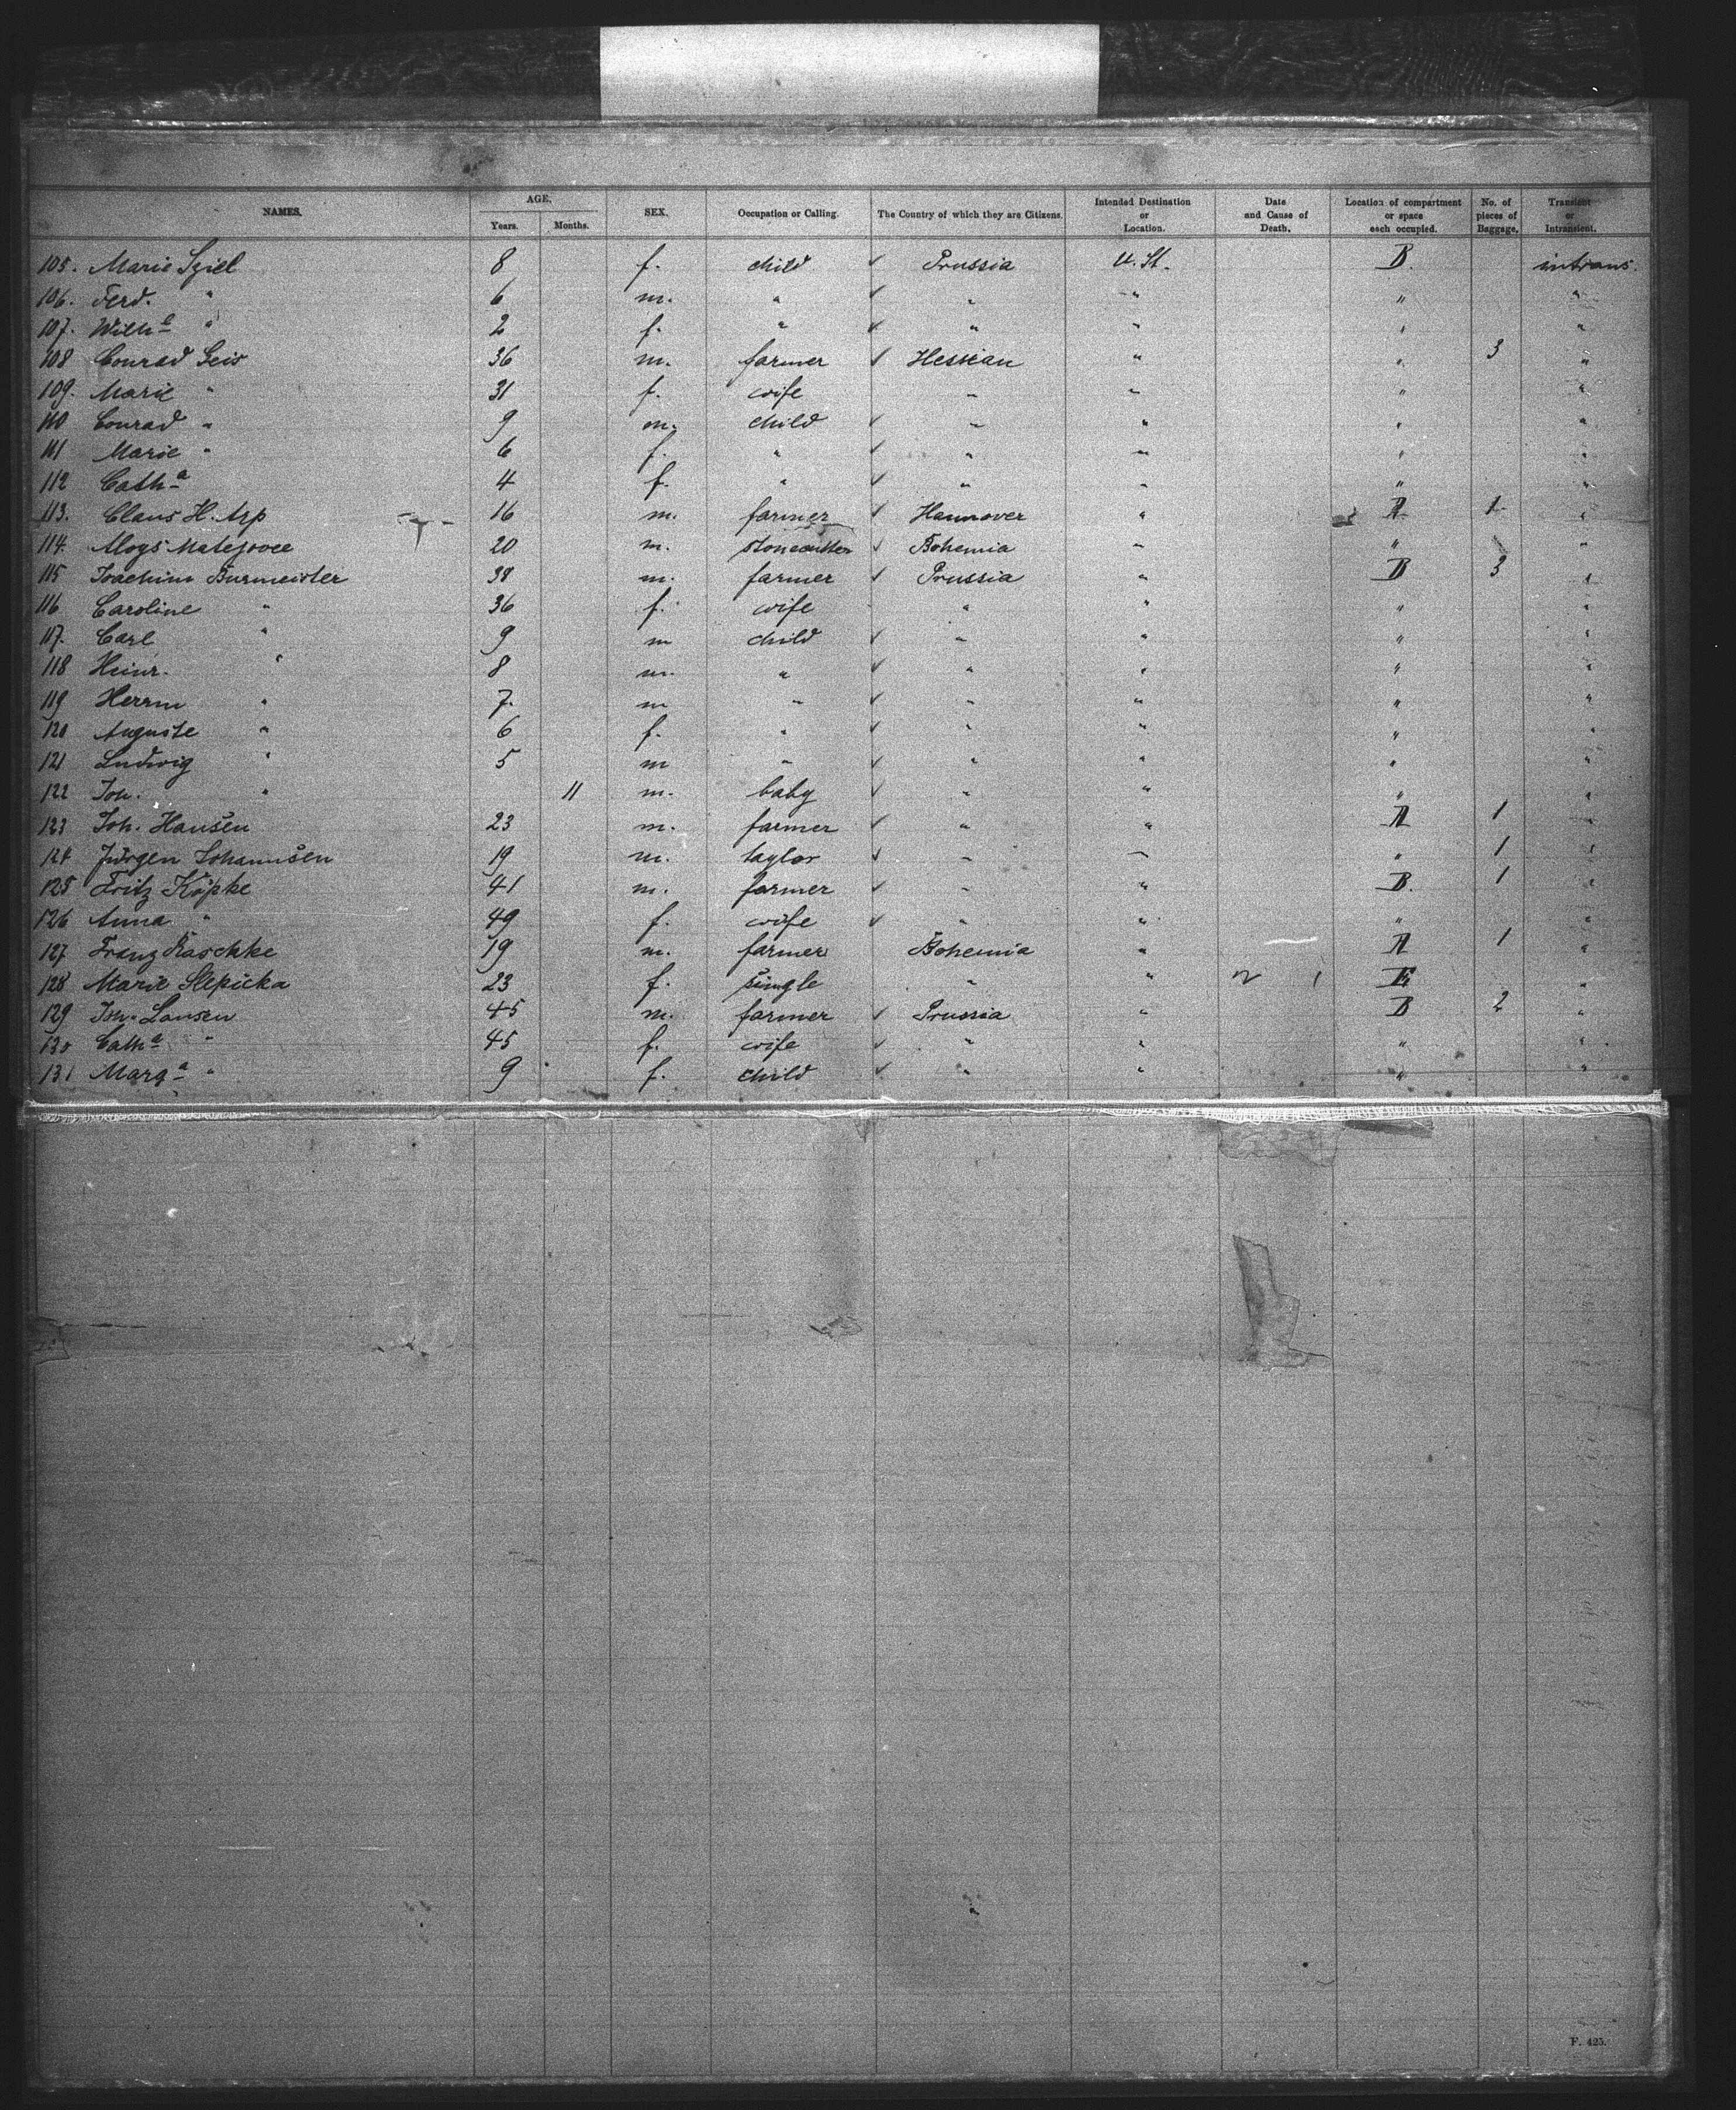 NAMES. AGE. Years. Months. SEX. Occupation or Calling. The Country of which they are Citizens. Intended Destination or Location. Date and Cause of Death. Location of compartment or space each occupied. No. of pieces of Baggage. Transient or Intransient.
105. Marie Sziel 8 f. child ✓ Prussia U. St. B. intrans.
106. Ferd. " 6 m. " ✓ " " " "
107. Wilh<sup>e</sup> " 2 f. " ✓ " " " "
108 Conrad Geis 36 m. farmer ✓ Hessian " " 3 "
109. Marie " 31 f. wife " " " "
110 Conrad " 9 m. child ✓ " " " "
111 Marie " 6 f. " ✓ " " " "
112 Cath<sup>a</sup> " 4 f. " ✓ " " " "
113. Claus H. Arp 16 m. farmer ✓ Hannover " A 1 "
114. Aloys 20 m. stonecutter ✓ Bohemia " " "
115 Joachim Burmeister 38 m. farmer ✓ Prussia " B 3 "
116 Caroline " 36 f. wife " " " "
117. Carl " 9 m child ✓ " " " "
118 Heinr. " 8 m. " ✓ " " " "
119 Herrm " 7. m " ✓ " " " "
120 Auguste " 6 f. " ✓ " " " "
121 Ludwig " 5 m " ✓ " " " "
122 Joh. " 11 m. baby ✓ " " " "
123 Joh. Hansen 23 m. farmer ✓ " " A 1 "
124 Jürgen Johannsen 19 m. taylor ✓ " " " 1 "
125 Fritz Köpke 41 m. farmer ✓ " " B. 1 "
126 Anna " 49 f. wife ✓ " " " "
127 Franz Raschke 19 m. farmer Bohemia " A 1 "
128 Marie Slepicka 23 f. single " " E "
129 Joh. Lansen 45 m. farmer ✓ Prussia " B 2 "
130 Cath<sup>a</sup> " 45 f. wife ✓ " " " "
131 Marg<sup>a</sup> " 9 f. child ✓ " " " "
F. 425.